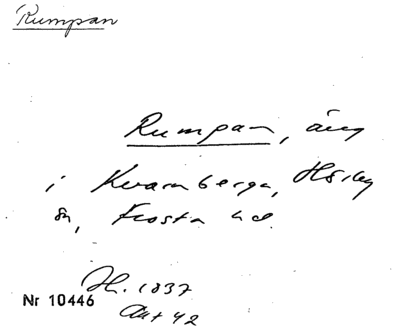 Rumpan
Rumpan, äng
i Kvarnberga, Hsiky
sn, Frosta hd.
Jh. 1837
Nr 10446
Akt 42